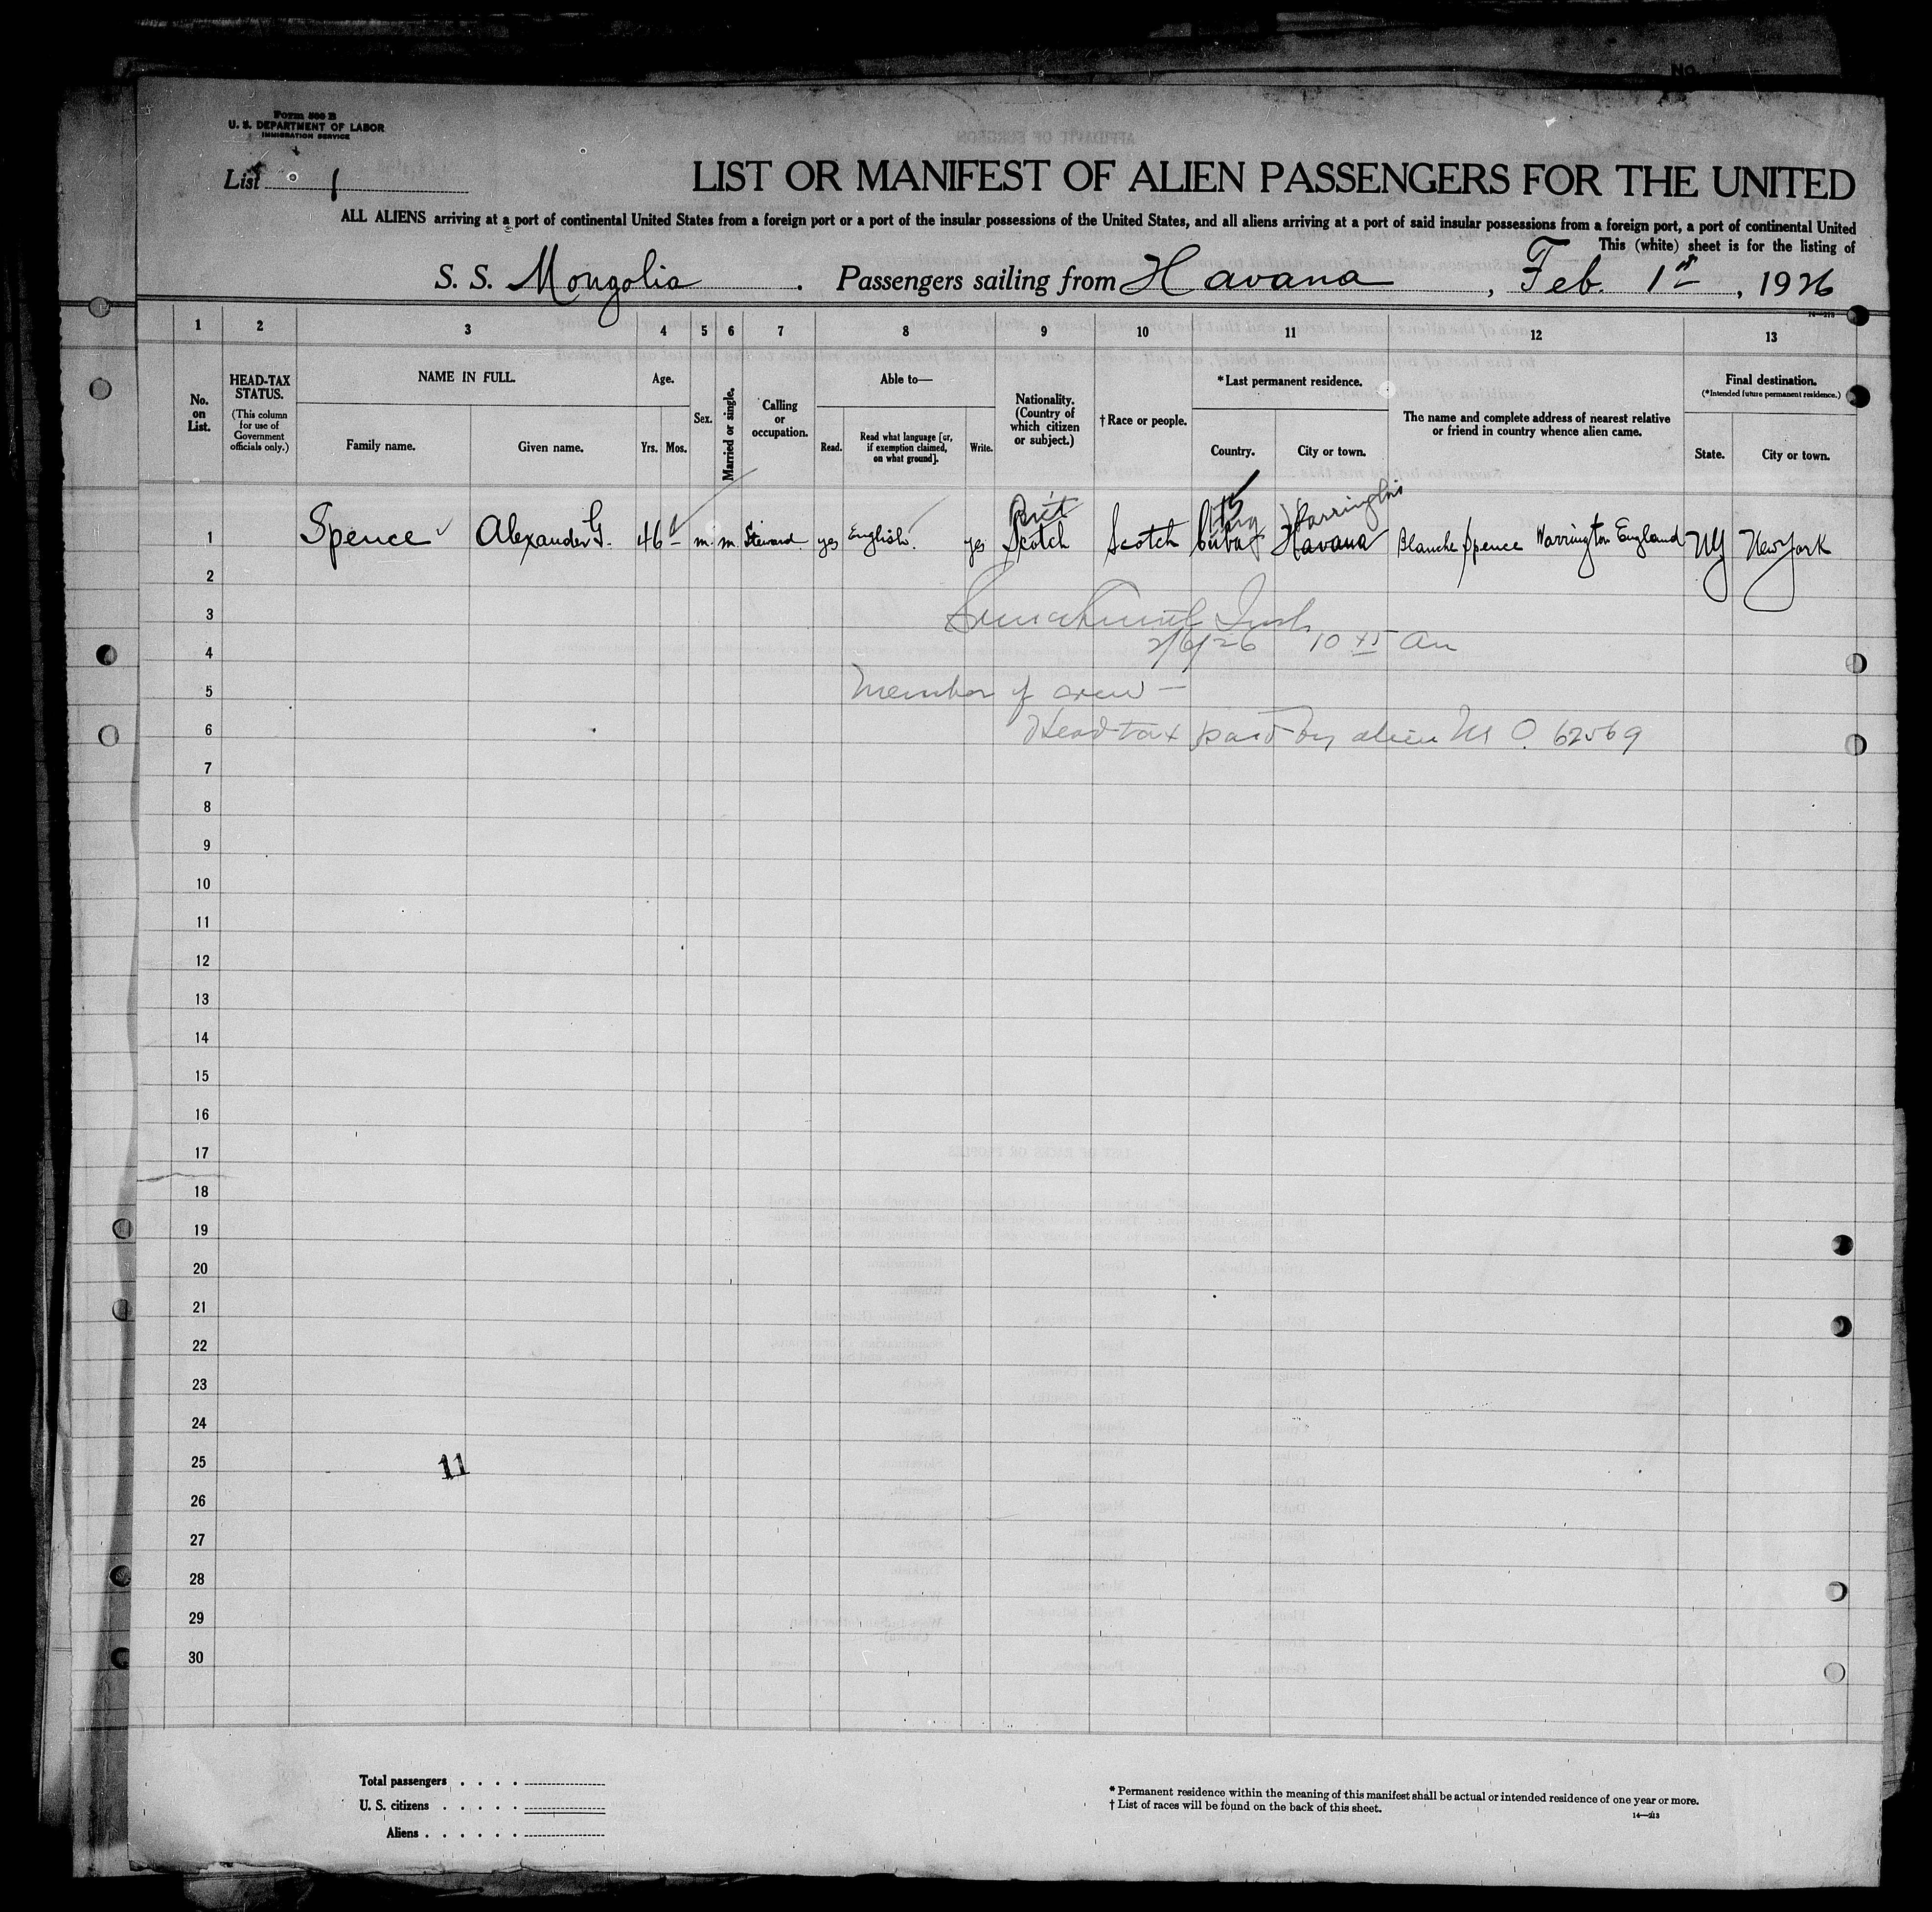 No.
Form 500 B
U. S. DEPARTMENT OF LABOR
IMMIGRATION SERVICE
List 1
LIST OR MANIFEST OF ALIEN PASSENGERS FOR THE UNITED
ALL ALIENS arriving at a port of continental United States from a foreign port or a port of the insular possessions of the United States, and all aliens arriving at a port of said insular possessions from a foreign port, a port of continental United
This (white) sheet is for the listing of
S. S. Mongolia. Passengers sailing from Havana, Feb. 1st, 1926
14—213
1 2 3 4 5 6 7 8 9 10 11 12 13
No. on List.
HEAD-TAX STATUS.
(This column for use of Government officials only.)
NAME IN FULL.
Family name. Given name.
Age.
Yrs. Mos.
Sex.
Married or single.
Calling or occupation.
Able to—
Read. Read what language [or, if exemption claimed, on what ground]. Write.
Nationality. (Country of which citizen or subject.)
† Race or people.
* Last permanent residence.
Country. City or town.
The name and complete address of nearest relative or friend in country whence alien came.
Final destination.
(* Intended future permanent residence.)
State. City or town.
Brit Warrington
1 Spence Alexander G. 46 m. m. Steward yes English yes Scotch Scotch Cuba Havana Blanche Spence Warrington England NY New York
2
3
2/6/26 10 45 am
4
5 Member of crew —
6 Head tax paid by alien M O. 62569
7
8
9
10
11
12
13
14
15
16
17
18
19
20
21
22
23
24
25 11
26
27
28
29
30
Total passengers . . . .
U. S. citizens . . . . .
Aliens . . . . . .
* Permanent residence within the meaning of this manifest shall be actual or intended residence of one year or more.
† List of races will be found on the back of this sheet.
14—213